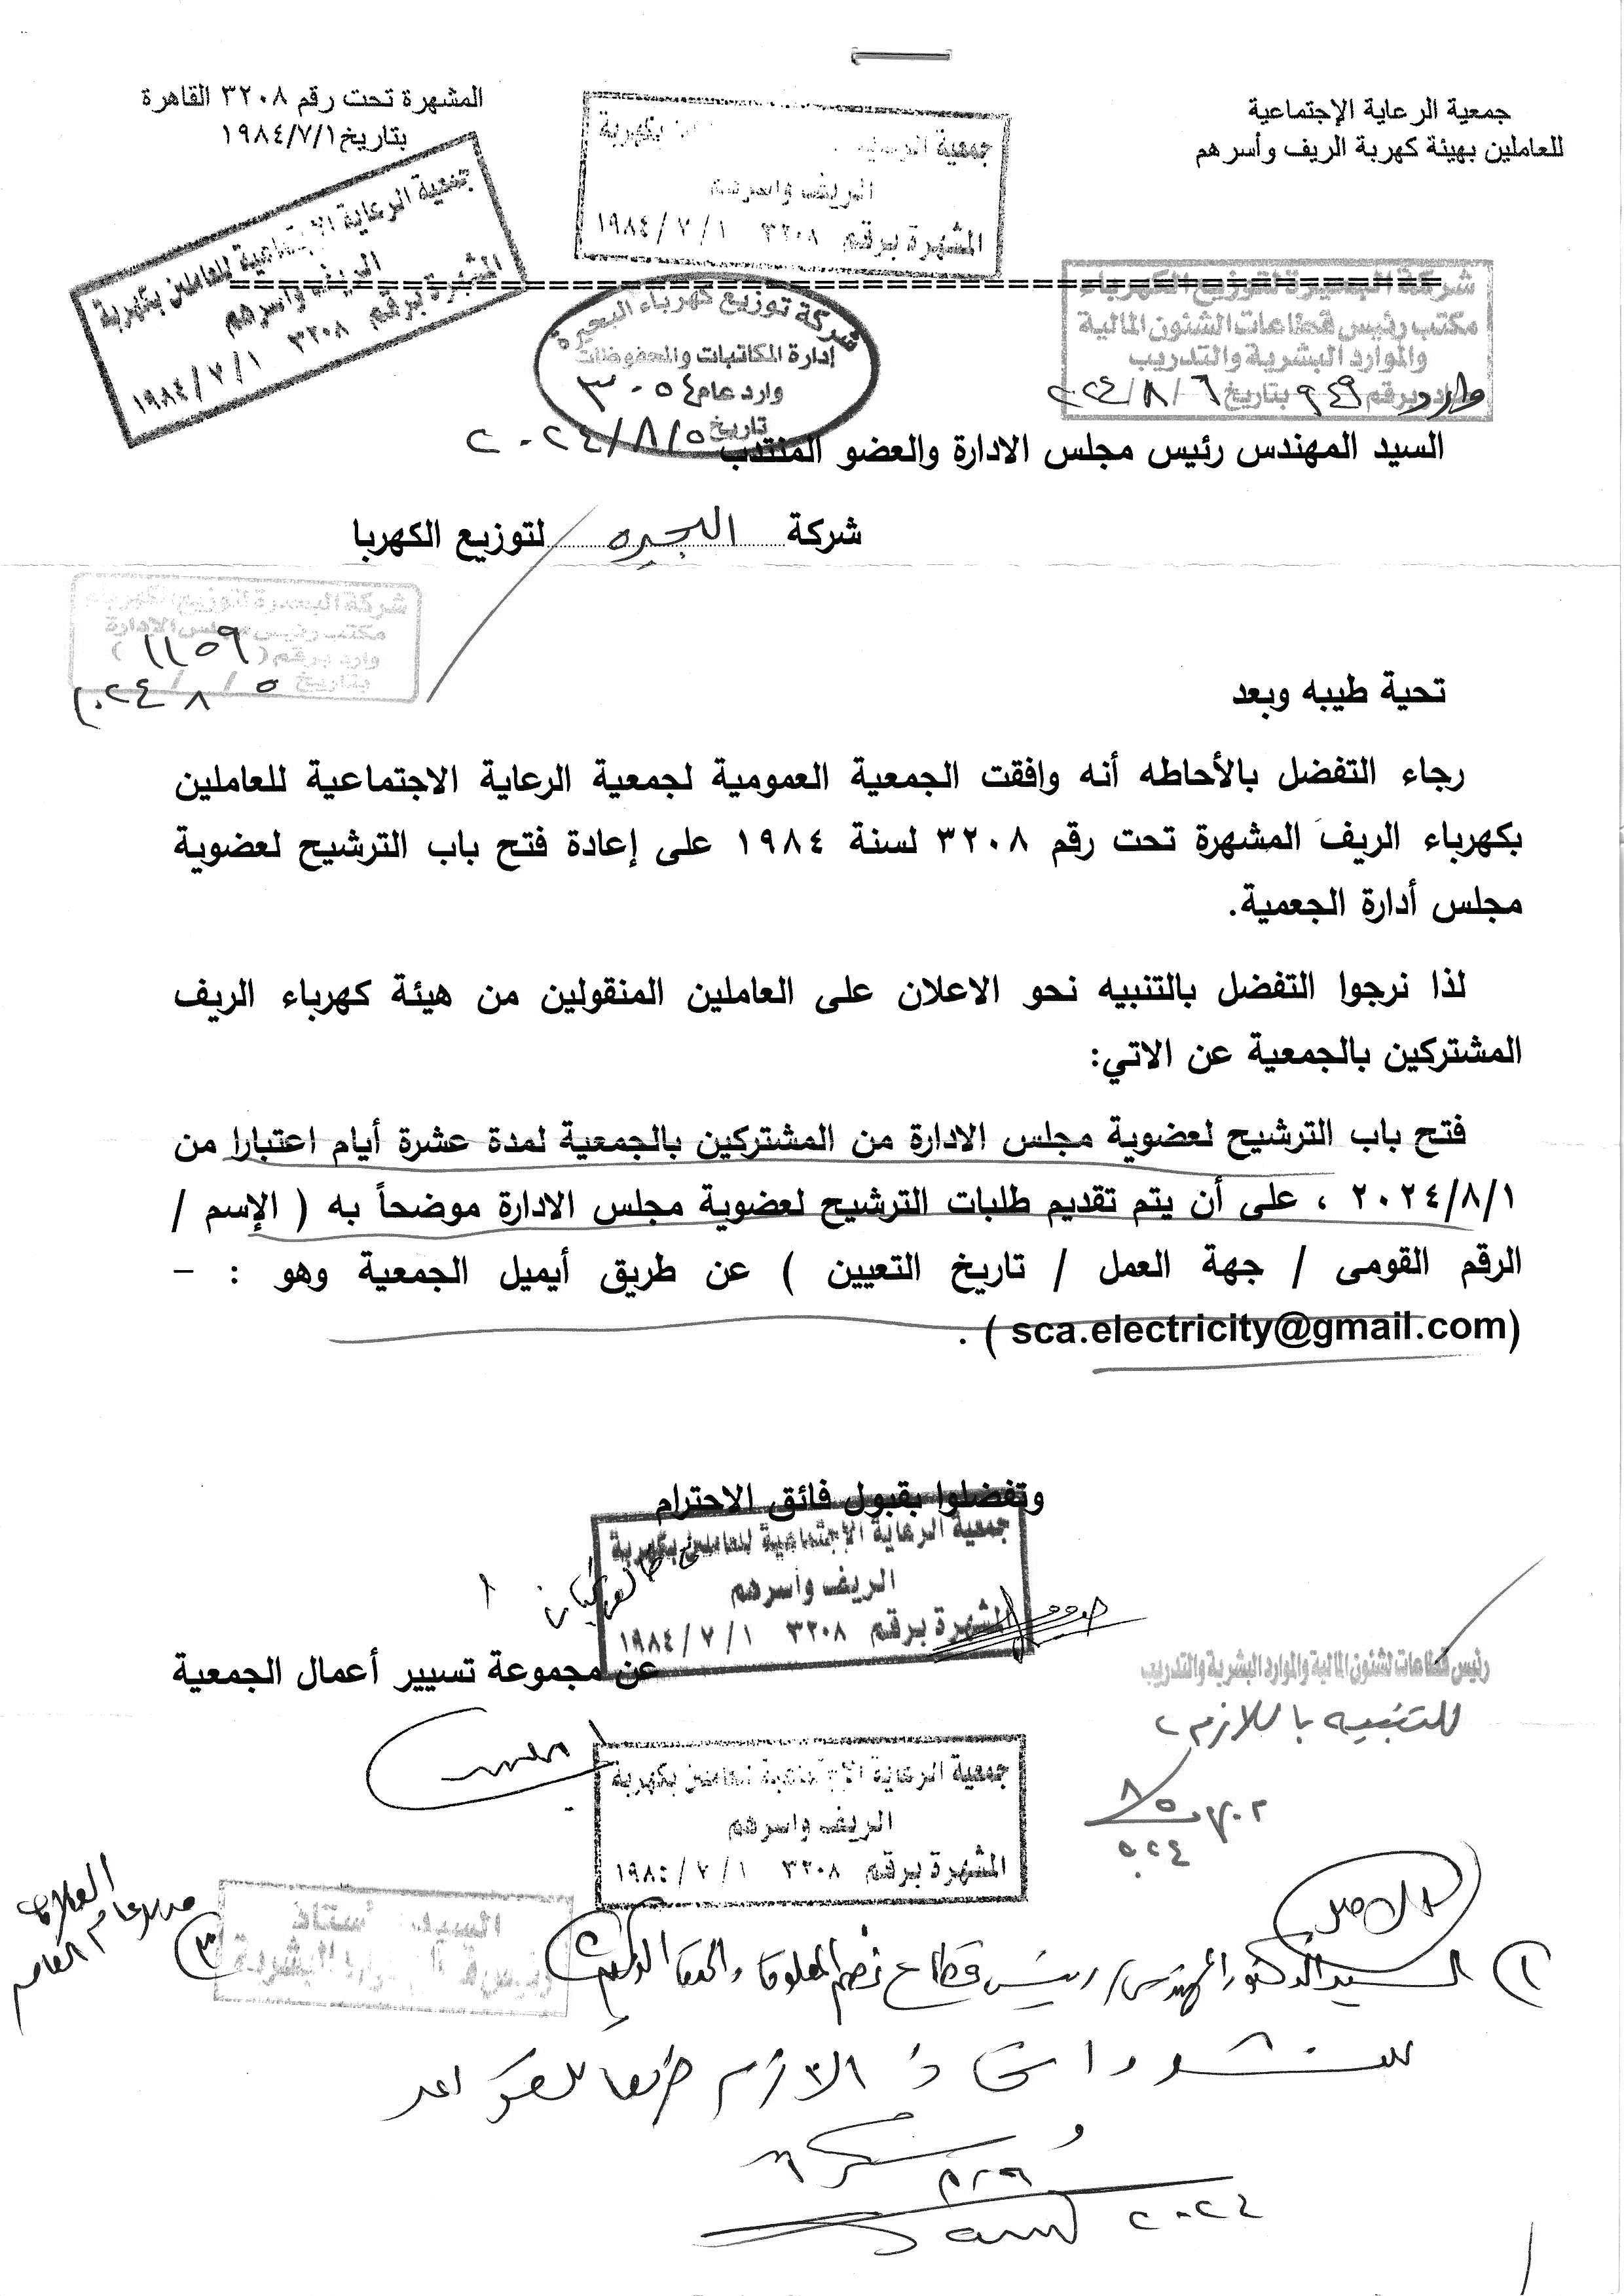 جمعية الرعاية الإجتماعية
للعاملين بهيئة كهربة الريف وأسرهم
المشهرة تحت رقم ٣٢٠٨ القاهرة
بتاريخ ١٩٨٤/٧/١
جمعية الرعاية بكهربة
الريف واسرهم
المشهرة برقم ٣٢٠٨ ١٩٨٤/٧/١
جمعية الرعاية الإجتماعية للعاملين بكهربة
الريف واسرهم
المشهرة برقم ٣٢٠٨ ١٩٨٤/٧/١
شركة توزيع كهرباء البحيرة
إدارة المكاتبات والمحفوظات
وارد عام ٣٠٥٤
تاريخ ٢٠٢٤/٨/٥
شركة البحيرة لتوزيع الكهرباء
مكتب رئيس قطاعات الشئون المالية
والموارد البشرية والتدريب
وارد برقم ٩٤٩ بتاريخ ٢٠٢٤/٨/٦
السيد المهندس رئيس مجلس الادارة والعضو المنتدب
شركة البحيره لتوزيع الكهربا
مكتب رئيس مجلس الادارة
وارد برقم (١١٥٩)
بتاريخ ٥ / ٨ / ٢٠٢٤
تحية طيبه وبعد
رجاء التفضل بالأحاطه أنه وافقت الجمعية العمومية لجمعية الرعاية الاجتماعية للعاملين
بكهرباء الريف المشهرة تحت رقم ٣٢٠٨ لسنة ١٩٨٤ على إعادة فتح باب الترشيح لعضوية
مجلس أدارة الجعمية.
لذا نرجوا التفضل بالتنبيه نحو الاعلان على العاملين المنقولين من هيئة كهرباء الريف
المشتركين بالجمعية عن الاتي:
فتح باب الترشيح لعضوية مجلس الادارة من المشتركين بالجمعية لمدة عشرة أيام اعتبارا من
٢٠٢٤/٨/١ ، على أن يتم تقديم طلبات الترشيح لعضوية مجلس الادارة موضحاً به ( الإسم /
الرقم القومى / جهة العمل / تاريخ التعيين ) عن طريق أيميل الجمعية وهو : –
(sca.electricity@gmail.com ) .
وتفضلوا بقبول فائق الاحترام
جمعية الرعاية الإجتماعية للعاملين بكهربة
الريف واسرهم
المشهرة برقم ٣٢٠٨ ١٩٨٤/٧/١
عن مجموعة تسيير أعمال الجمعية
رئيس قطاعات الشئون المالية والموارد البشرية والتدريب
للتنبيه باللازم
جمعية الرعاية الإجتماعية للعاملين بكهربة
الريف واسرهم
المشهرة برقم ٣٢٠٨ ١٩٨٤/٧/١
السيد الدكتور المهندس / رئيس قطاع نظم المعلومات
للنشر واتخاذ اللازم طبقا للقواعد
٢٠٢٤